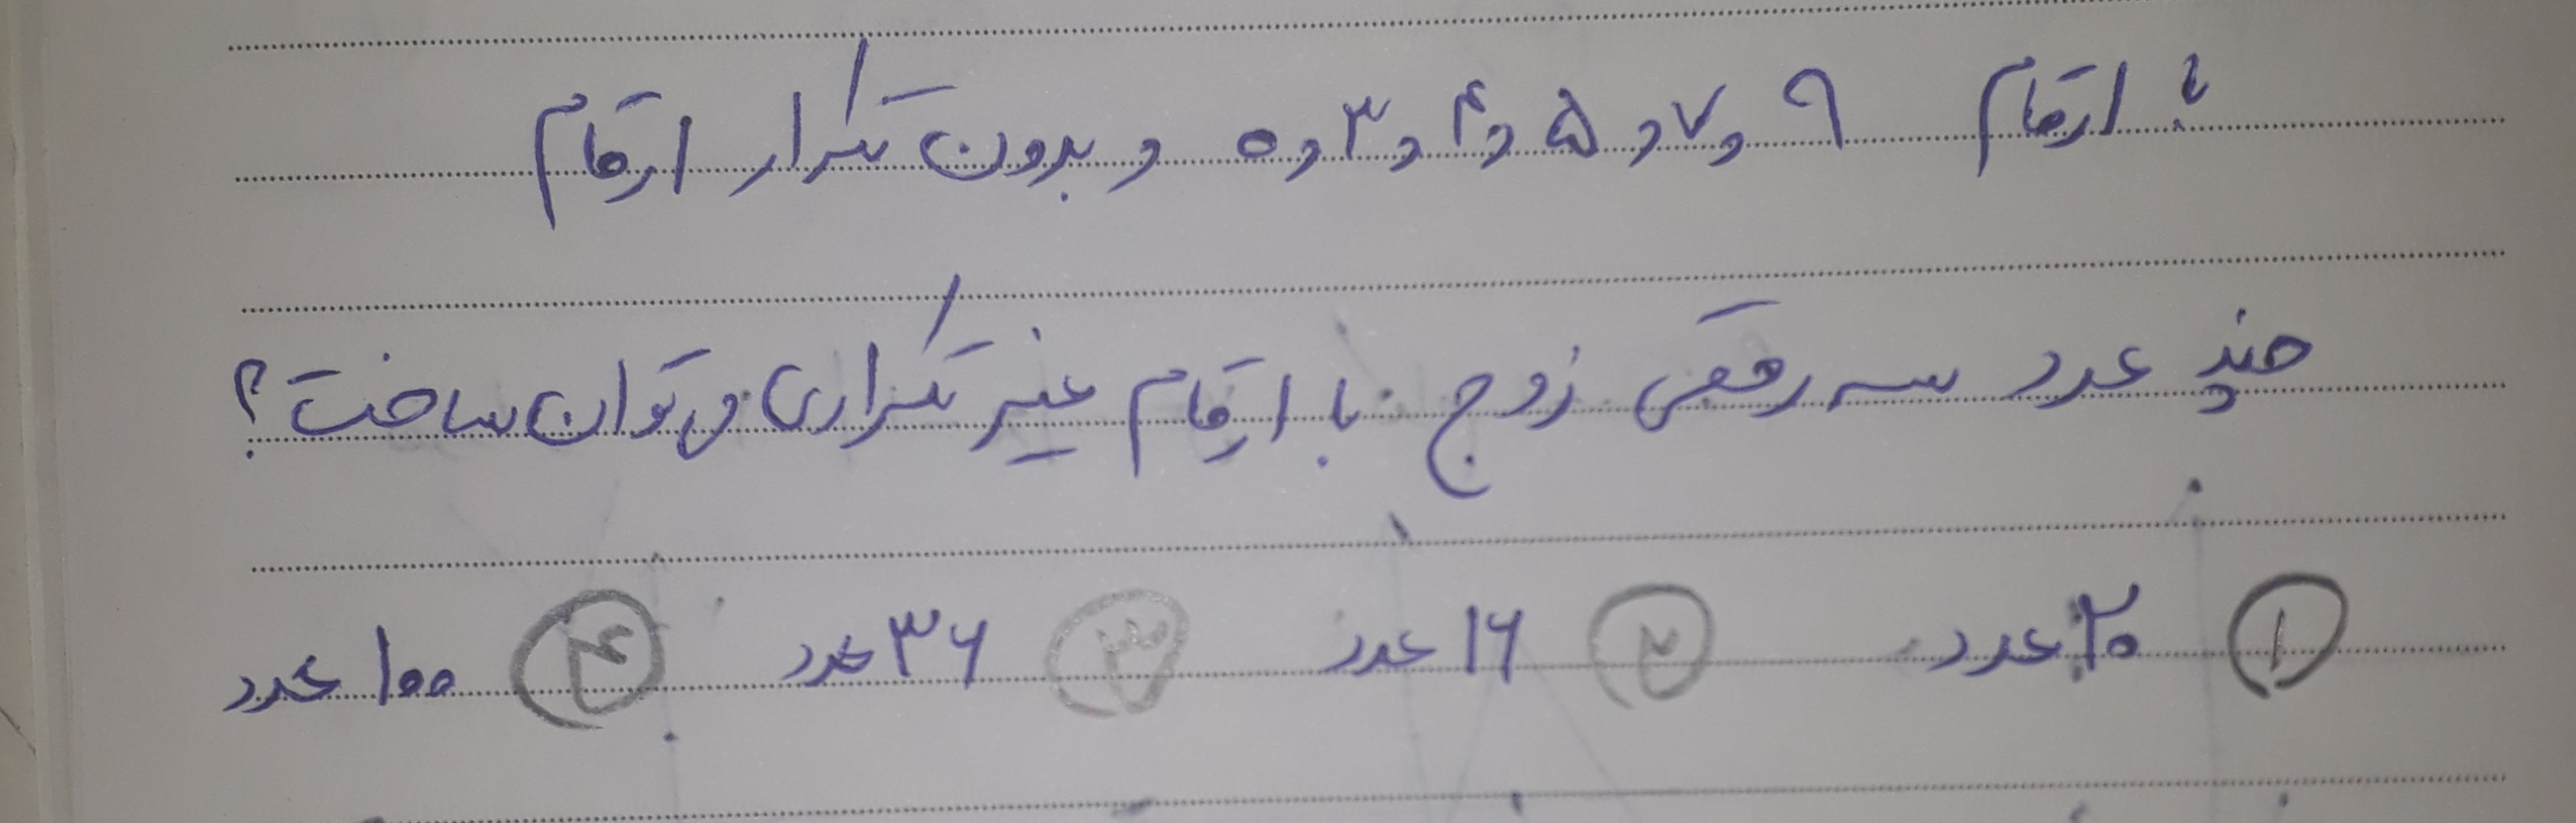 با ارقام ۹ و ۷ و ۵ و ۴ و ۳ و ۰ و بدون تکرار ارقام
چند عدد سه رقمی زوج با ارقام غیر تکراری می توان ساخت؟
۱ ۲۰ عدد ۲ ۱۶ عدد ۳ ۳۶ عدد ۴ ۱۰۰ عدد